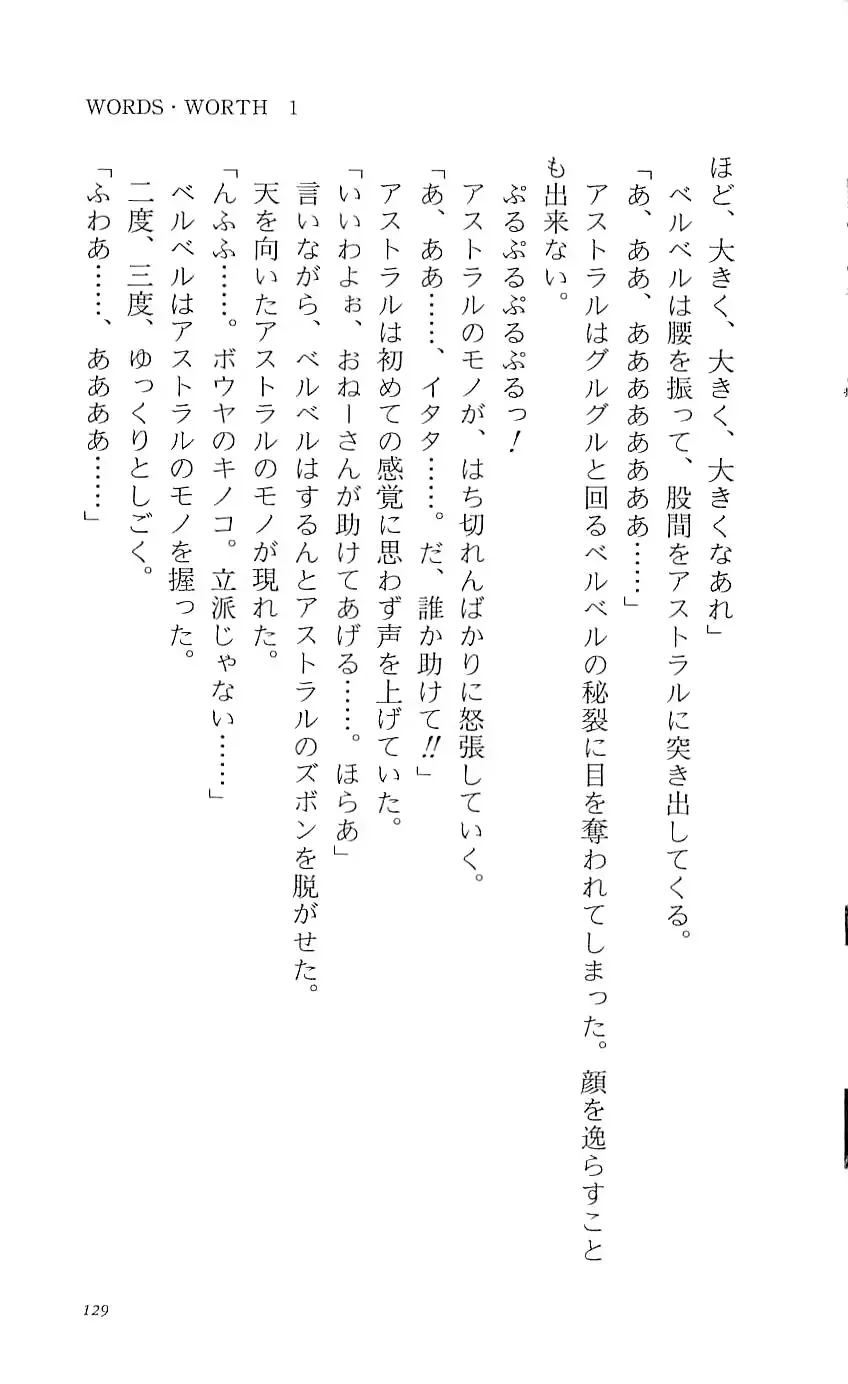 WORDS・WORTH 1
ほど、大きく、大きく、大きくなあれ」
ベルベルは腰を振って、股間をアストラルに突き出してくる。
「あ、ああ、ああああああああ……」
アストラルはグルグルと回るベルベルの秘裂に目を奪われてしまった。顔を逸らすこと
も出来ない。
ぷるぷるぷるぷるっ！
アストラルのモノが、はち切れんばかりに怒張していく。
「あ、ああ……、イタタ……。だ、誰か助けて!!」
アストラルは初めての感覚に思わず声を上げていた。
「いいわよぉ、おねーさんが助けてあげる……。ほらあ」
言いながら、ベルベルはするんとアストラルのズボンを脱がせた。
天を向いたアストラルのモノが現れた。
「んふふ……。ボウヤのキノコ。立派じゃない……」
ベルベルはアストラルのモノを握った。
二度、三度、ゆっくりとしごく。
「ふわあ……、ああああ……」
129